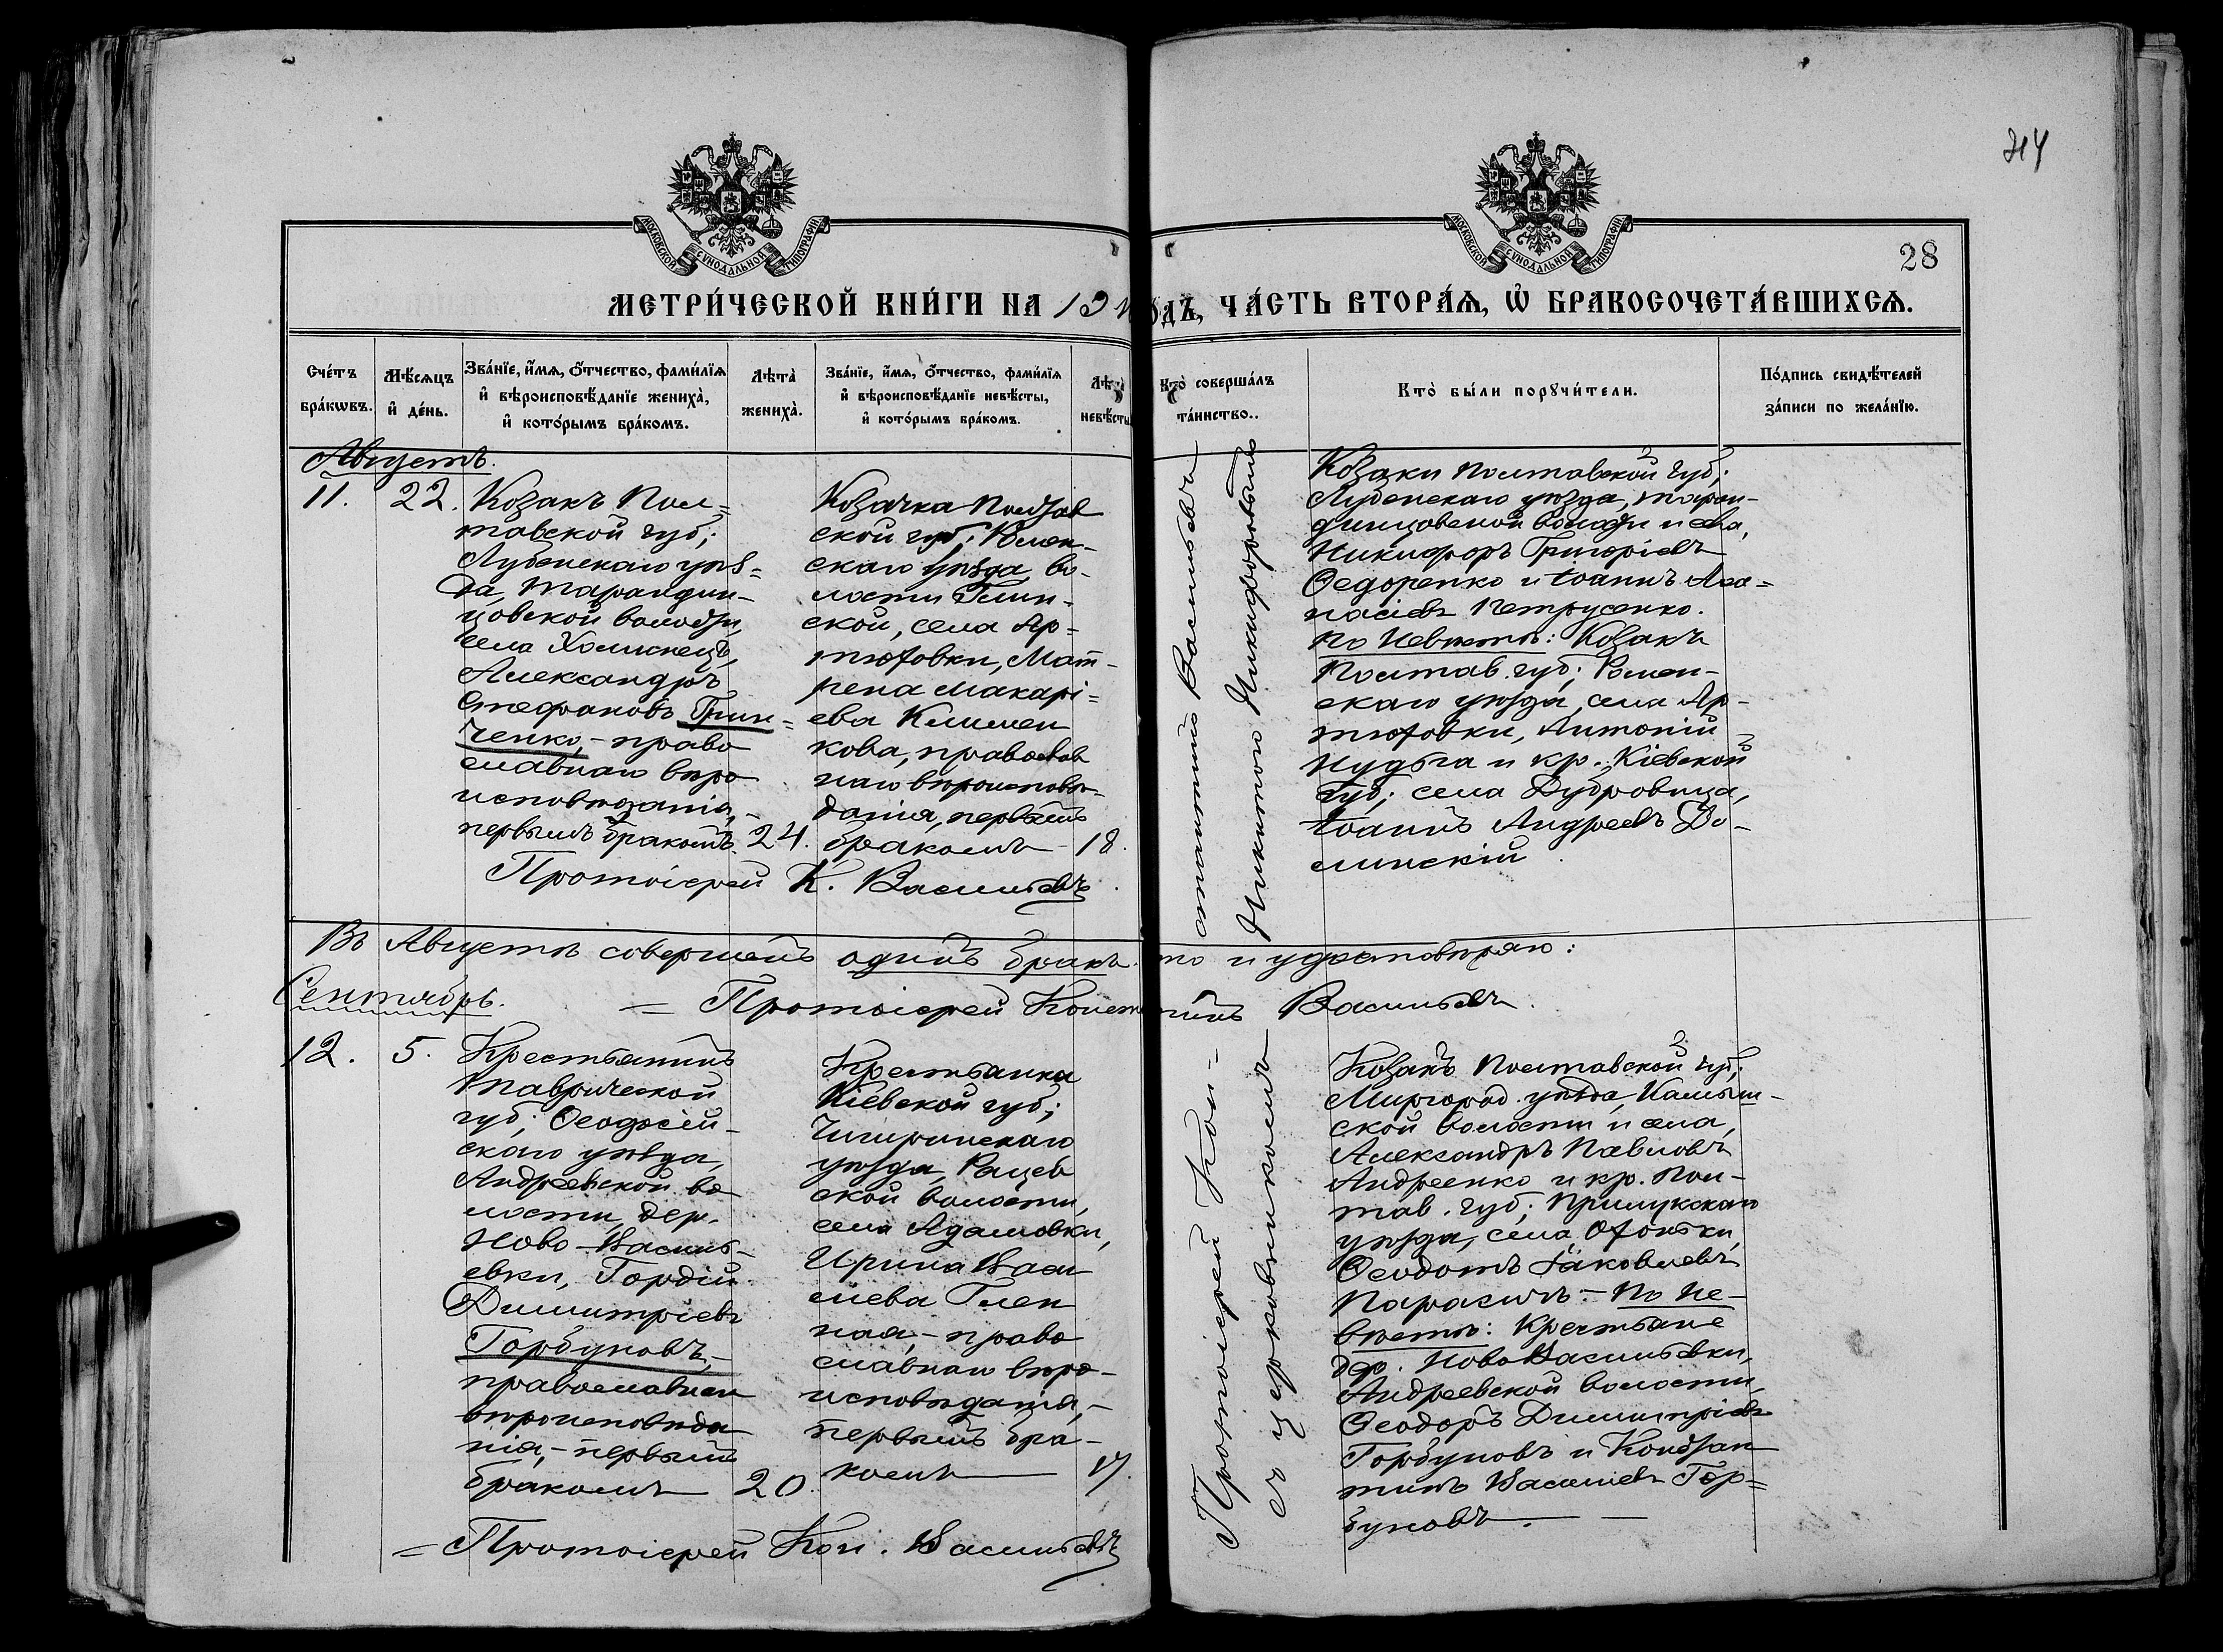 314
28
МОСКОВСКОЙ СУНОДАЛЬНОЙ ТИПОГРАФІИ
МОСКОВСКОЙ СУНОДАЛЬНОЙ ТИПОГРАФІИ
МЕТРИ́ЧЕСКОЙ КНИ́ГИ НА 19
ОДЪ, ЧА́СТЬ ВТОРА́Ѧ, Ѽ БРАКОСОЧЕТА́ВШИХСѦ.
Сче́тъ бра́кѡвъ.
Мѣ́сѧцъ и҆ де́нь.
Зва́нїе, и҆́мѧ, ѻ҆́тчество, фами́лїѧ и҆ вѣроисповѣ́данїе жениха̀, и҆ кото́рымъ бра́комъ.
Лѣта̀ жениха̀.
Зва́нїе, и҆́мѧ, ѻ҆́тчество, фами́лїѧ и҆ вѣроисповѣ́данїе невѣ́сты, и҆ кото́рымъ бра́комъ.
Лѣ невѣ́сты
Кто̀ соверша́лъ та́инство..
Кто̀ бы́ли порꙋчи́тели.
По́дпись свидѣ́телей за́писи по жела́нїю.
Августъ.
11. 22. Козакъ Пол=
тавской губ;
Лубенскаго уѣз=
да, Тарандин-
цовской волости,
села Холмовець,
Александръ
Стефановъ Грин=
ченко,- право
славнаго вѣро
исповѣданія,-
первымъ бракомъ. 24.
Козачка Полтав
ской губ; Ромен-
скаго уѣзда, во-
лости Глин-
ской, села Яр=
тюховки, Мат-
рена Макарі=
ева Климен
кова, православ
наго вѣроисповѣ-
данія, первымъ
бракомъ - 18.
Протоіерей К. Васильевъ
стантинъ Васильевъ
Никитою Никифоровымъ
Козаки Полтавской губ;
Лубенскаго уѣзда, Таран-
динцовской волости и села,
Никифоръ Григоріевъ
Ѳедоренко и Іоаннъ Аѳа=
насіевъ Петрусенко.
По Невѣстѣ: Козакъ
Полтав. губ; Ромен-
скаго уѣзда, села Яр-
тюховки, Антоній
Нудьга и кр. Кіевской
губ; села Дубровица,
Іоаннъ Андреевъ До-
линскій.
Въ Августѣ совершенъ одинъ бракъ то и удостовѣряю:
= Протоіерей Константинъ Васильевъ.
Сентябрь.
12. 5. Крестьянинъ
Таврической
губ; Ѳеодосій-
скаго уѣзда,
Андреевской во
лости, дер.
Ново-Василь-
евки, Гордій
Димитріевъ
Горбуновъ,-
православнаго
вѣроисповѣда
нія,- первымъ
бракомъ 20.
Крестьянка
Кіевской губ;
Чигиринскаго
уѣзда, Рацев
ской волости,
села Адамовки,
Ирина Васи
лiева Глен
ная,- право
славнаго вѣро-
исповѣданія,-
первымъ бра-
комъ 17.
= Протоіерей Кон. Васильевъ
Протоіерей Кон=
съ церковникомъ
Козакъ Полтавской губ;
Миргород. уѣзда, Камыш-
ской волости и села,
Александръ Павловъ
Андреенко и кр. Пол-
тав. губ; Прилукскаго
уѣзда, села Охоньки,
Ѳеодотъ Іаковлевъ
Парасичъ.- По Не-
вѣстѣ: Крестьяне
дер. Ново Васильевки,
Андреевской волости,
Ѳеодоръ Димитріевъ
Горбуновъ и Констан
тинъ Васильевъ Гор=
буновъ.